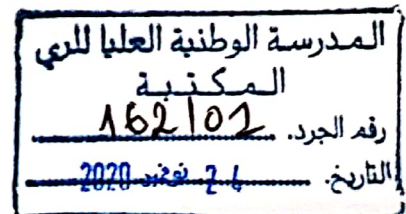 المدرسة الوطنية العليا للري
المكتبة
رقم الجرد. 162/02
التاريخ. 24 نوفمبر 2020